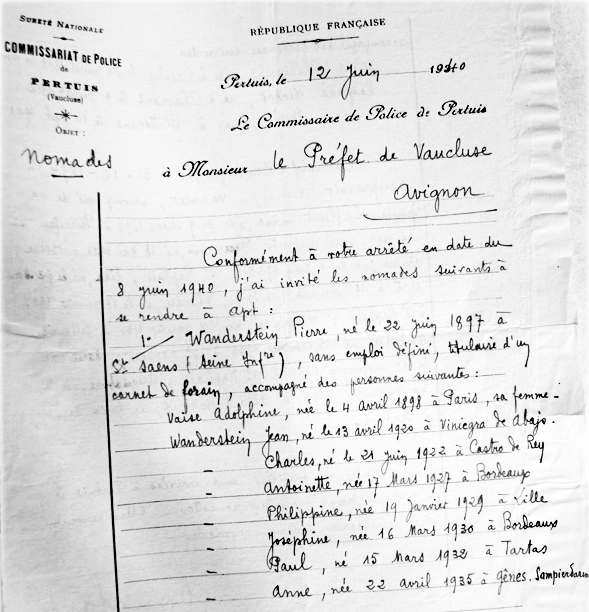 SURETÉ NATIONALE
COMMISSARIAT DE POLICE
de
PERTUIS
(Vaucluse)
OBJET :
Nomades
RÉPUBLIQUE FRANÇAISE
Pertuis, le 12 Juin 1940
Le Commissaire de Police de Pertuis
à Monsieur le Préfet de Vaucluse
Avignon
Conformément à votre arrêté en date du
8 juin 1940, j'ai invité les nomades suivants à
se rendre à Apt :
1- Wanderstein Pierre, né le 22 Juin 1897 à
St Saens (Seine Infre), sans emploi défini, titulaire d'un
carnet de forain, accompagné des personnes suivantes :
Vaise Adolphine, née le 4 avril 1898 à Paris, sa femme -
Wanderstein Jean, né le 13 avril 1920 à Viniegra de Abajo.
- Charles, né le 21 Juin 1922 à Castro de Rey
- Antoinette, née 17 Mars 1927 à Bordeaux
- Philippine, née 19 Janvier 1929 à Lille
- Joséphine, née 16 Mars 1930 à Bordeaux
- Paul, né 15 Mars 1932 à Tartas
- Anne, née 22 avril 1935 à Gênes. Sampierdarena